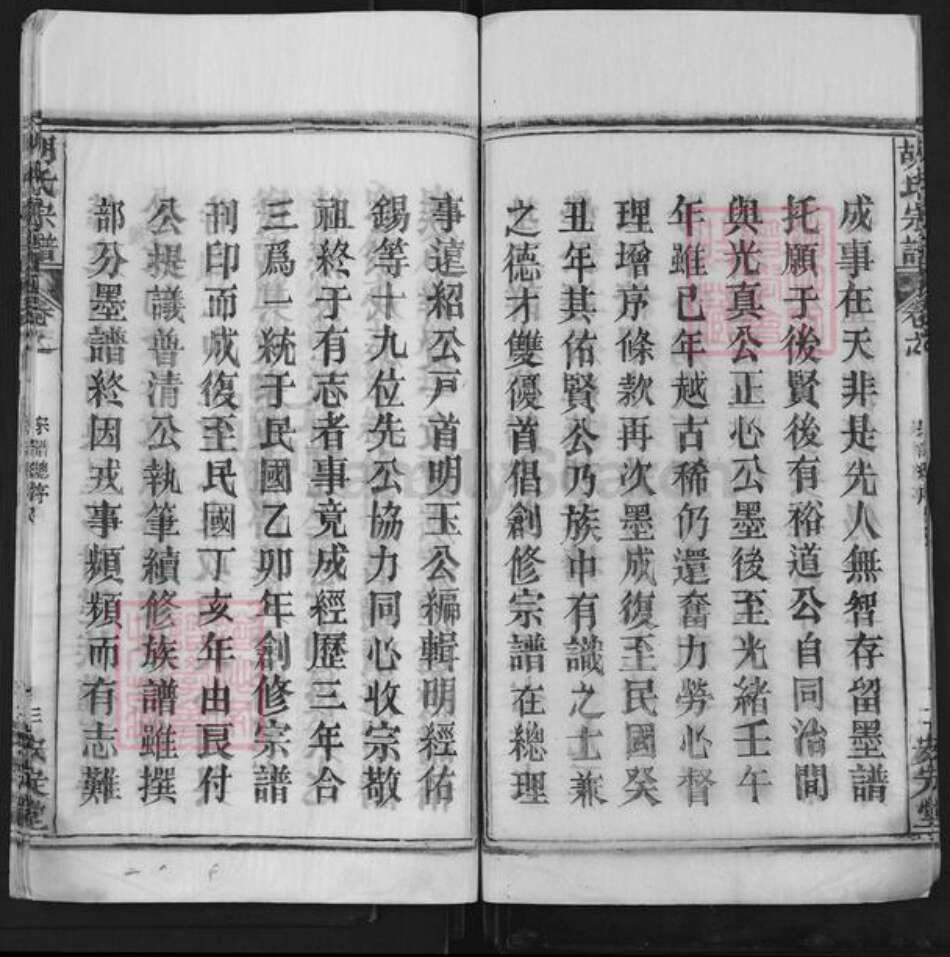 胡氏宗譜
成事在天非是先人無智存留墨譜
托願于後賢後有裕道公自同治間
與光真公正心公墨後至光緒壬午
年雖已年越古稀仍還奮力勞心督
理增序條款再次墨成復至民國癸
丑年其佑賢公乃族中有識之士兼
之德才雙優首倡創修宗譜在總理
事遠紹公戸首明玉公編輯明經佑
錫等十九位先公協力同心收宗敬
祖終于有志者事竟成經歷三年合
三爲一統于民國乙卯年創修宗譜
刊印而成復至民國丁亥年由艮付
公提議普清公執筆續修族譜雖撰
部分墨譜終因戎事頻頻而有志難
胡氏宗譜
FamilySearch